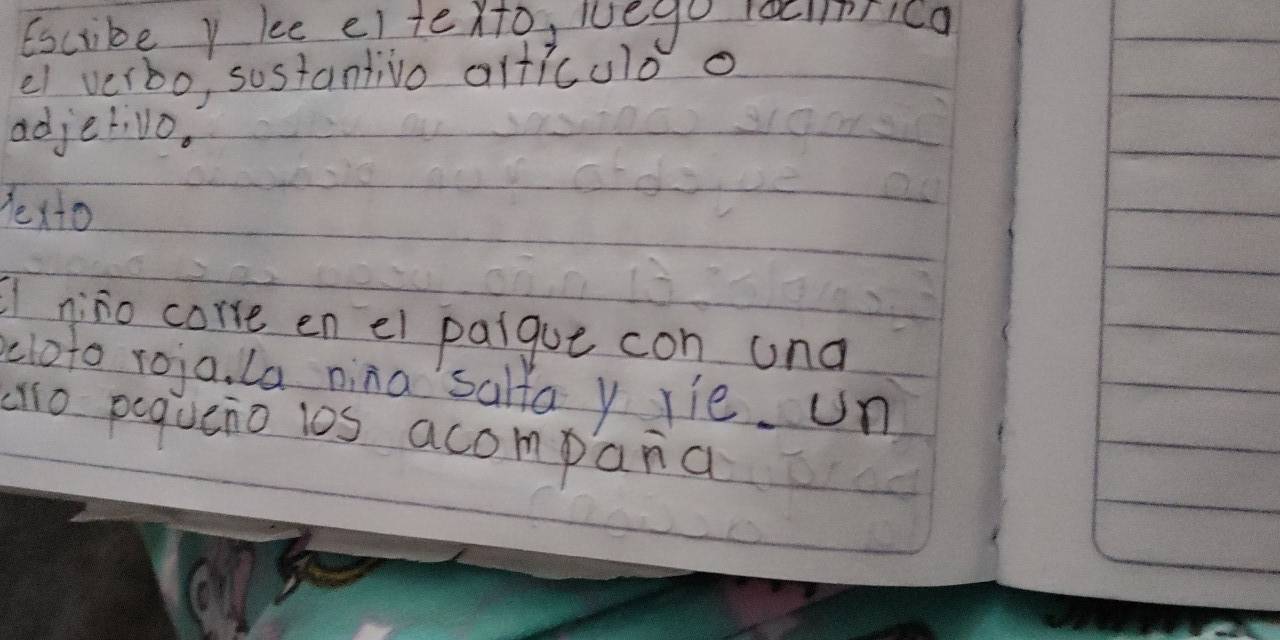 Escribe y lee el texto, luego identifica
el verbo, sustantivo artículo o
adjetivo.
Texto
El niño corre en el parque con una
peloto roja. La niña salta y ríe. Un
pequeño los acompaña